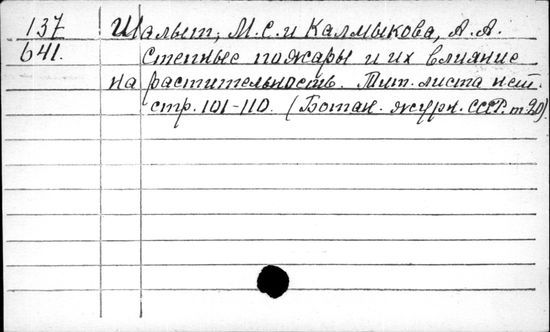 137 Шалыт, М.С. и Калмыкова, А.А.
641. Степные пожары и их влияние
на растительность. Тит. листа нет.
стр. 101-110. (Ботан. журн. СССР. т. 20).